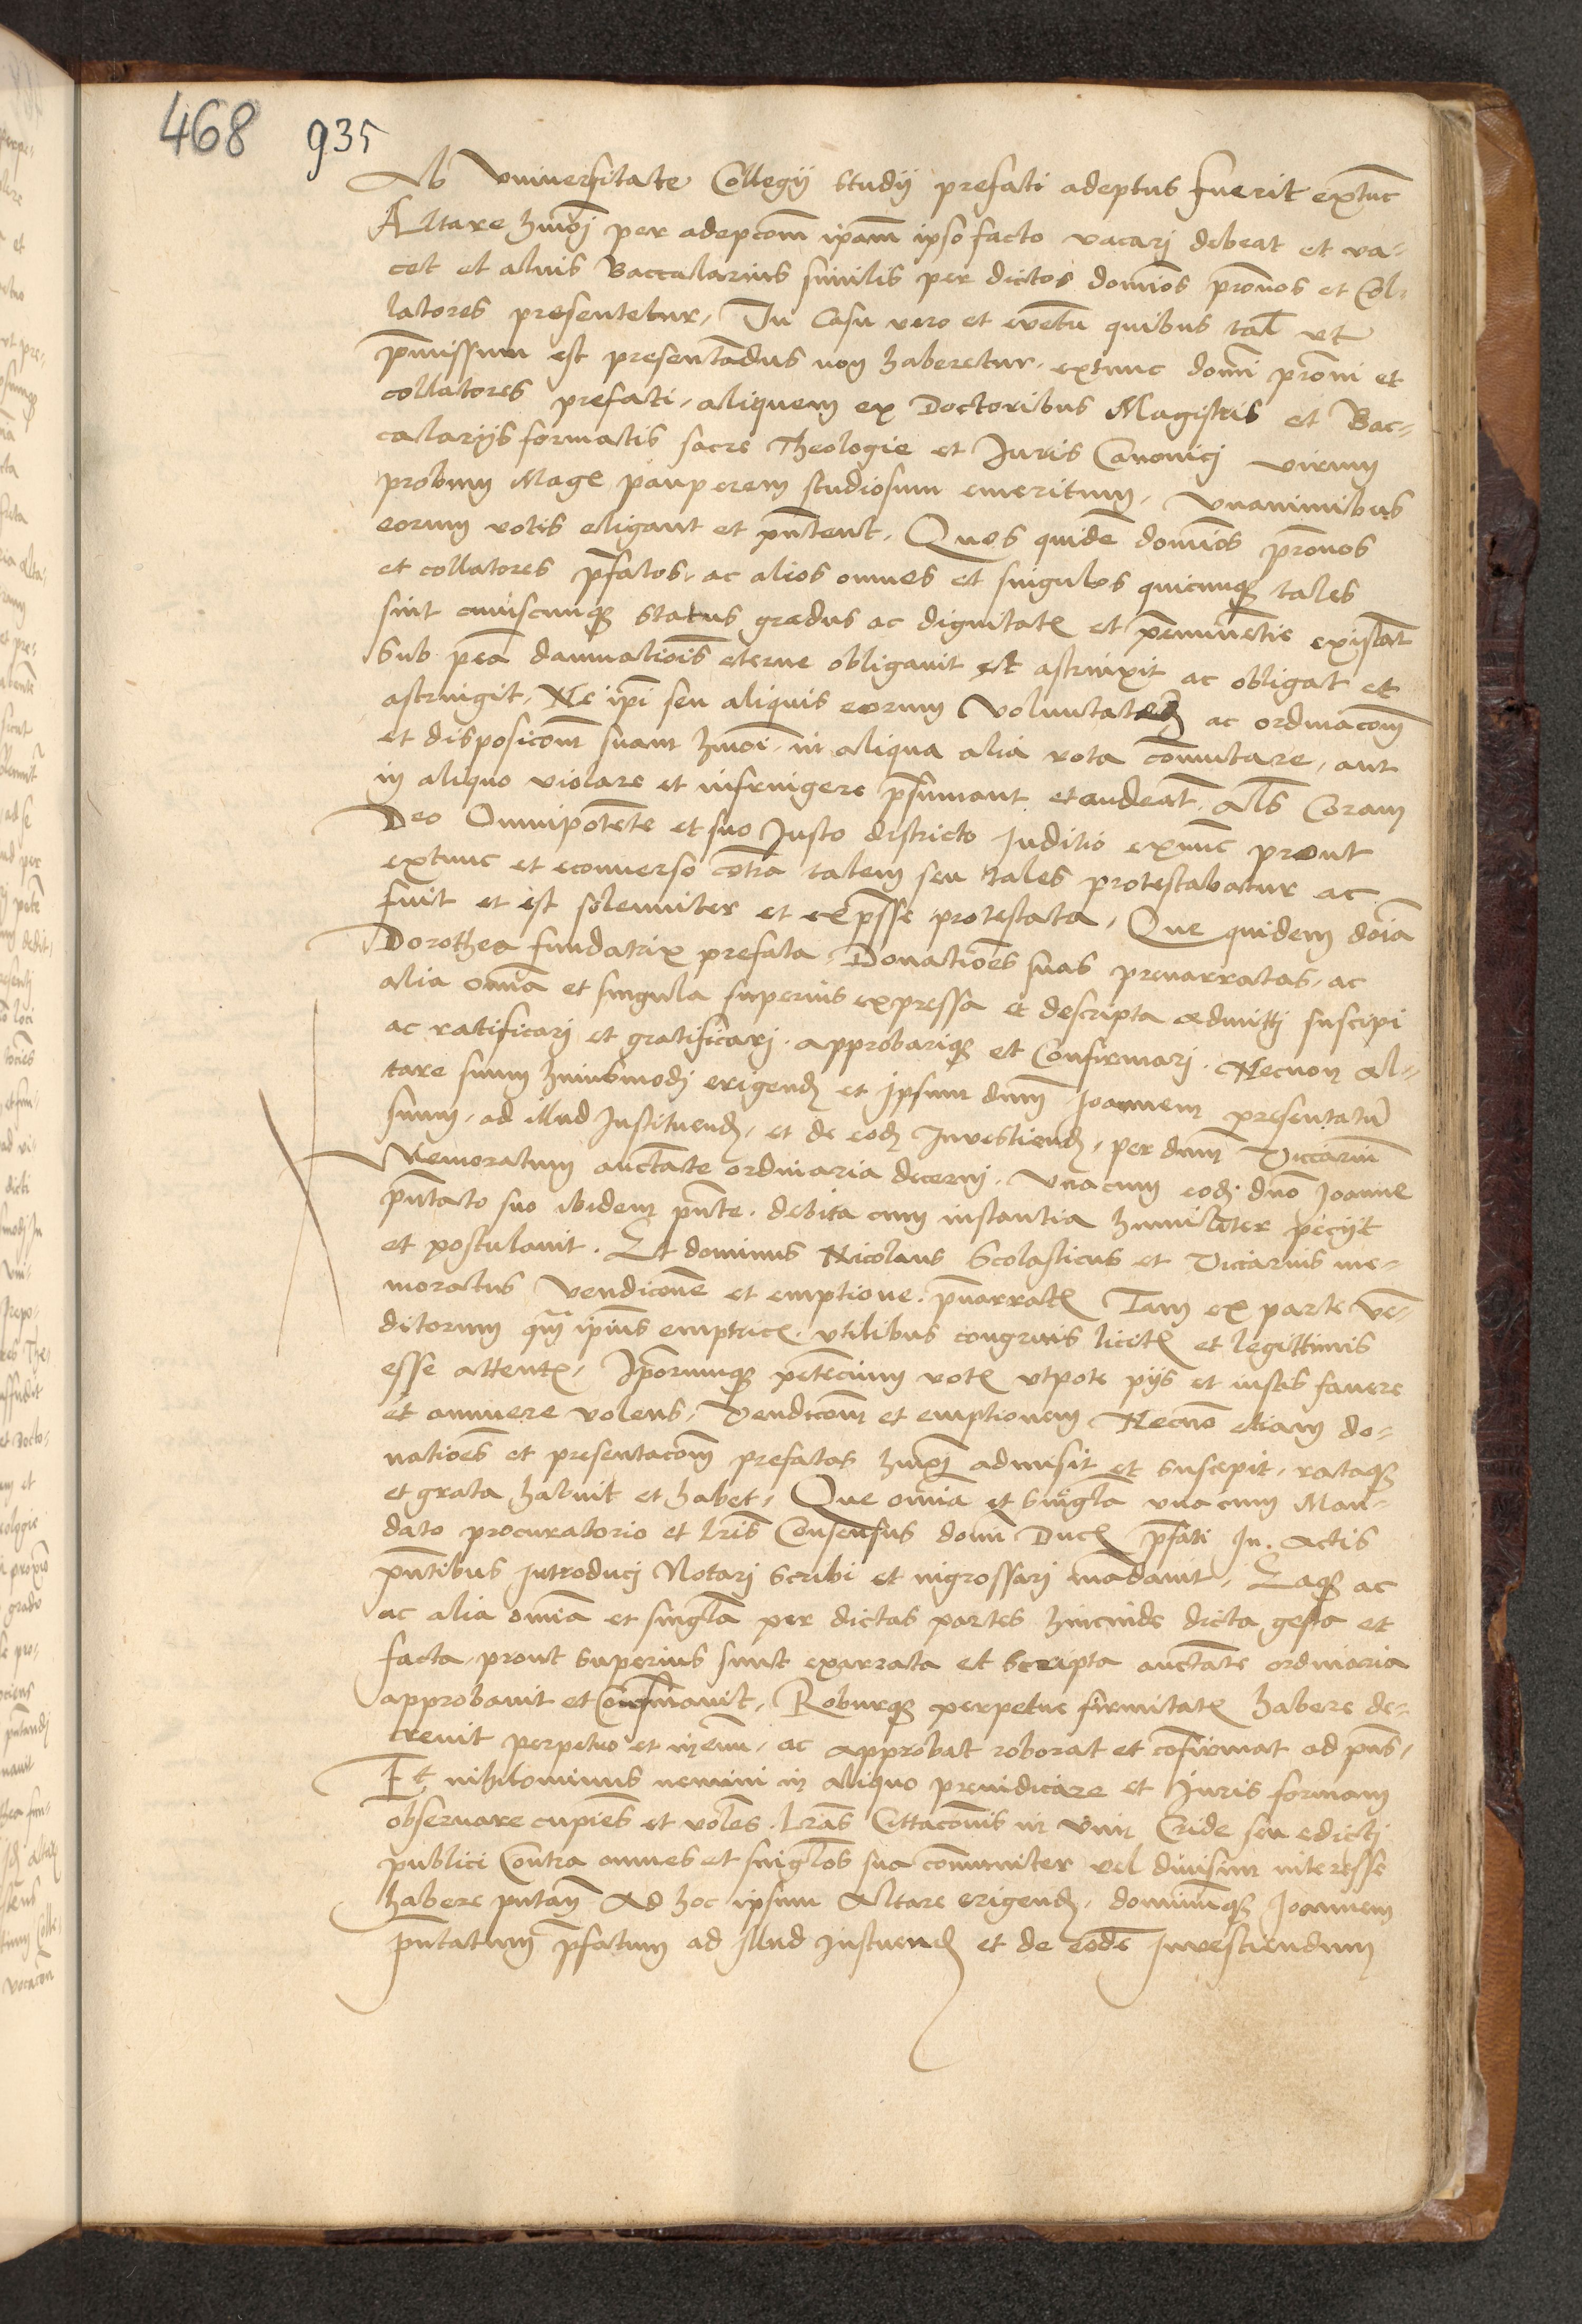 468 935
Ab vniuersitate Collegij studij prefati adeptus fuerit extunc
Altare hmoi per adepcom ipam ipso facto vacari debeat et va-
cet et alius Baccalarius similis per dictos dominos pronos et Col-
latores presentetur, In Casu vero et euetu quibus tal vt
pmissum est presentadus non haberetur, extunc domi proni et
collatores prefati, aliquem ex Doctoribus Magistris et Bac-
calarijs formatis sacre Theologie et Iuris Canonici virum
probum Mage pauperem studiosum emeritum, vnanimibus
eorum votis eligant et pntent, Quos quide dominos pronos
et collatores pfatos, ac alios omnes et singulos quicunq tales
sint cuiuscunq status gradus ac dignitat et preminetie existat
sub pea damnatiois eterne obligauit et astrinxit ac obligat et
astringit, Ne ipi seu aliquis eorum voluntatem ac ordinacom
et disposicom suam hmoi, in aliqua alia vota comutare, aut
in aliquo violare et infringere psumant et audeat, als Coram
Deo Omnipotente et suo Iusto districto Iuditio exnunc prout
extunc et econuerso cotra talem seu tales protestabatur ac
fuit et est solenniter et expsse protestata, Que quidem doia
Dorothea fundatrix prefata, Donatioes suas prenarratas, ac
alia omia et singula superius expressa et descripta admitti suscipi
ac ratificari et gratificari, approbariq et Confirmari, Necnon al-
tare suum huiusmodi erigend et ipsum dnm Joannem presentatu
suum, ad illud Instituend, et de eod Inuestiend, per dnm Viccariu
Memoratum auctate ordinaria decerni, vnacum eod dno Joanne
pntato suo ibidem pnte, debita cum instantia humiliter petijt
et postulauit. Et dominus Nicolaus Scolasticus et Viccarius me-
moratus vendicone et emptione, pnarrat Tam ex parte ve-
ditorum qm ipius emptric, vtilibus congruis licit et legittimis
esse attent, Iporumq petencium vot vtpote pijs et iustis fauere
et annuere volens, Vendicom et emptionem Necno etiam do-
natioes et presentacom prefatas hmoi admisit et suscepit, rataq
et grata habuit et habet, Que omia et singla vna cum Man-
dato procuratorio et lris Consensus domi Duc pfati In Actis
pntibus introduci Notari scribi et ingrossari madauit, Eaq ac
ac alia omia et singla per dictas partes hincinde dicta gesta et
facta, prout superius sunt exarrata et scripta auctate ordinaria
approbauit et Confirmauit, Roburq perpetue firmitat habere de-
creuit perpetuo et in euu, ac approbat roborat et cofirmat ad pns,
Et nihilominus nemini in aliquo preiudicare et Iuris formam
obseruare cupies et voles, lras Cittacois in vim Cride seu edicti
publici Contra omnes et singlos sua comuniter vel diuisim interesse
habere putan Ad hoc ipsum Altare erigend, dominumq Joannem
pntatum pfatum ad illud instuend et de eode Inuestiendum